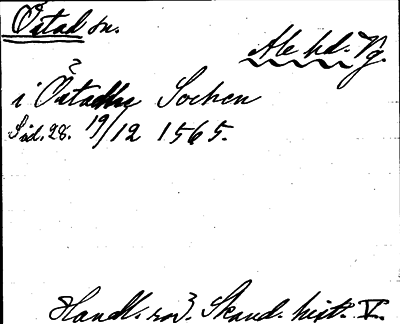 Östad sn.
Ale hd. Vg.
i Östadhz Sochen
Sid. 28. 19/12 1565.
Handl. rör. Skand. hist. V.